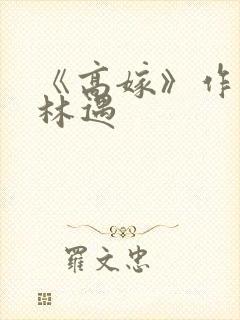 《高嫁》作
林遇
羅文忠